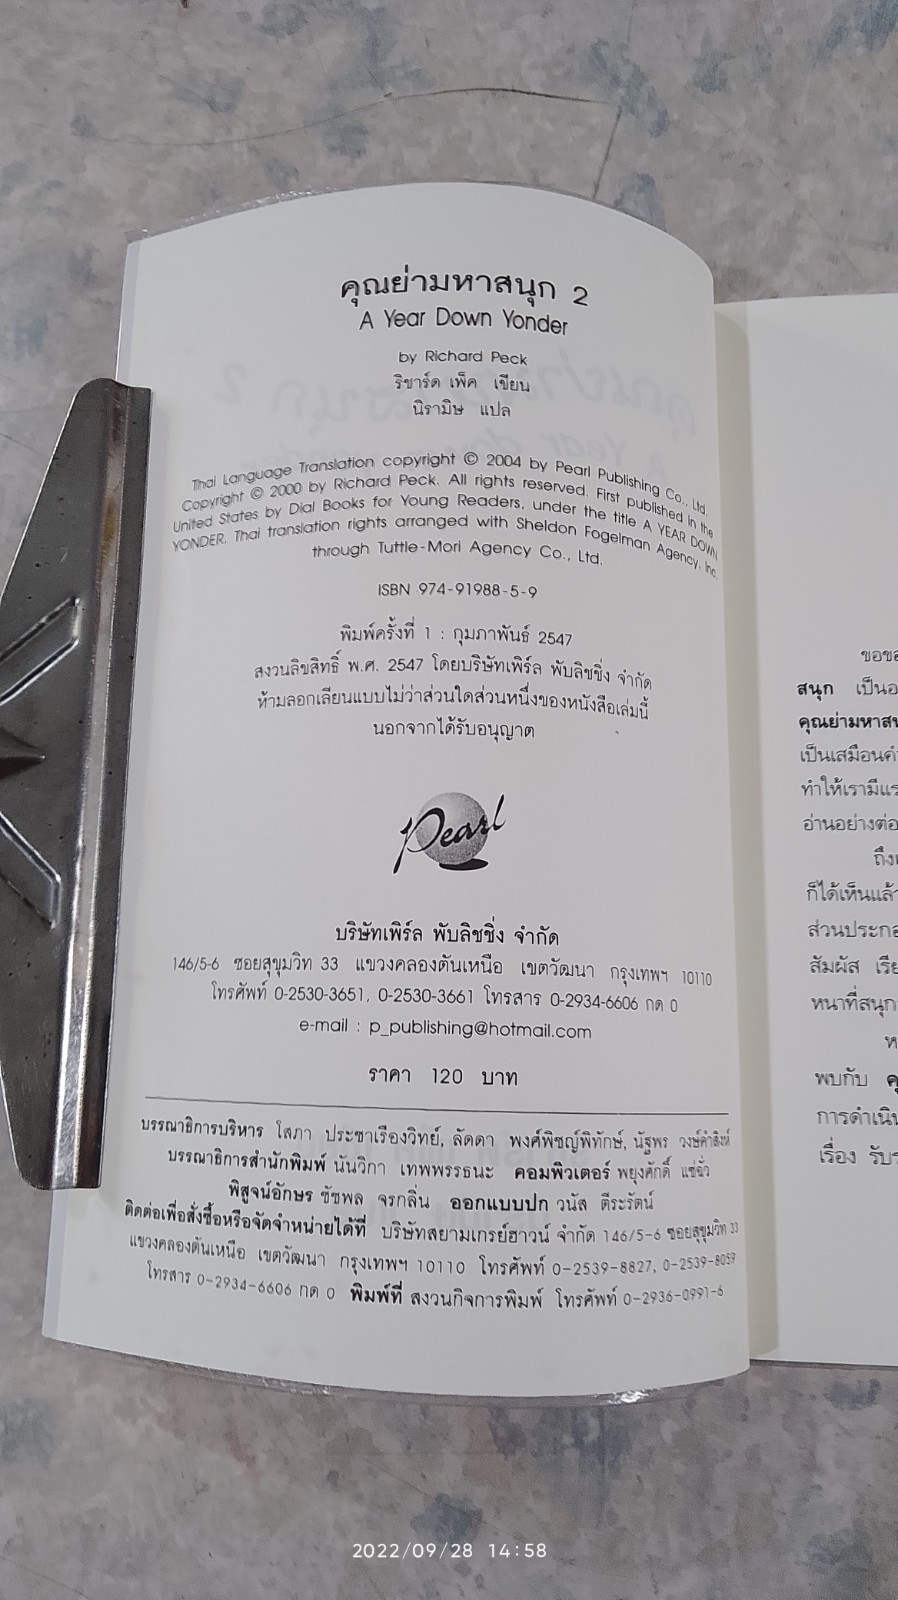 คุณย่ามหาสนุก 2
A Year Down Yonder
by Richard Peck
ริชาร์ด เพ็ค เขียน
นิรามิษ แปล
Thai Language Translation copyright © 2004 by Pearl Publishing Co., Ltd.
Copyright © 2000 by Richard Peck. All rights reserved. First published in the
United States by Dial Books for Young Readers, under the title A YEAR DOWN
YONDER. Thai translation rights arranged with Sheldon Fogelman Agency, Inc.
through Tuttle-Mori Agency Co., Ltd.
ISBN 974-91988-5-9
พิมพ์ครั้งที่ 1 : กุมภาพันธ์ 2547
สงวนลิขสิทธิ์ พ.ศ. 2547 โดยบริษัทเพิร์ล พับลิชชิ่ง จำกัด
ห้ามลอกเลียนแบบไม่ว่าส่วนใดส่วนหนึ่งของหนังสือเล่มนี้
นอกจากได้รับอนุญาต
Pearl
บริษัทเพิร์ล พับลิชชิ่ง จำกัด
146/5-6 ซอยสุขุมวิท 33 แขวงคลองตันเหนือ เขตวัฒนา กรุงเทพฯ 10110
โทรศัพท์ 0-2530-3651, 0-2530-3661 โทรสาร 0-2934-6606 กด 0
e-mail : p_publishing@hotmail.com
ราคา 120 บาท
บรรณาธิการบริหาร โสภา ประชาเรืองวิทย์, ลัดดา พงศ์พิชญ์พิทักษ์, นัฐพร วงษ์คำสิงห์
บรรณาธิการสำนักพิมพ์ นันวิกา เทพพรรธนะ คอมพิวเตอร์ พยุงศักดิ์ แซ่ฉั่ว
พิสูจน์อักษร ชัชพล จรกลิ่น ออกแบบปก วนัส ตีระรัตน์
ติดต่อเพื่อสั่งซื้อหรือจัดจำหน่ายได้ที่ บริษัทสยามเกรย์ฮาวน์ จำกัด 146/5-6 ซอยสุขุมวิท 33
แขวงคลองตันเหนือ เขตวัฒนา กรุงเทพฯ 10110 โทรศัพท์ 0-2539-8827, 0-2539-8059
โทรสาร 0-2934-6606 กด 0 พิมพ์ที่ สงวนกิจการพิมพ์ โทรศัพท์ 0-2936-0991-6
สนุก
คุณย่ามหาสน
เป็นเสมือนค
ทำให้เรามีแร
อ่านอย่างต่อ
ก็ได้เห็นแล้ว
ส่วนประกอ
สัมผัส เรีย
หนาที่สนุก
พบกับ
การดำเนิน
เรื่อง รับร
2022/09/28 14:58